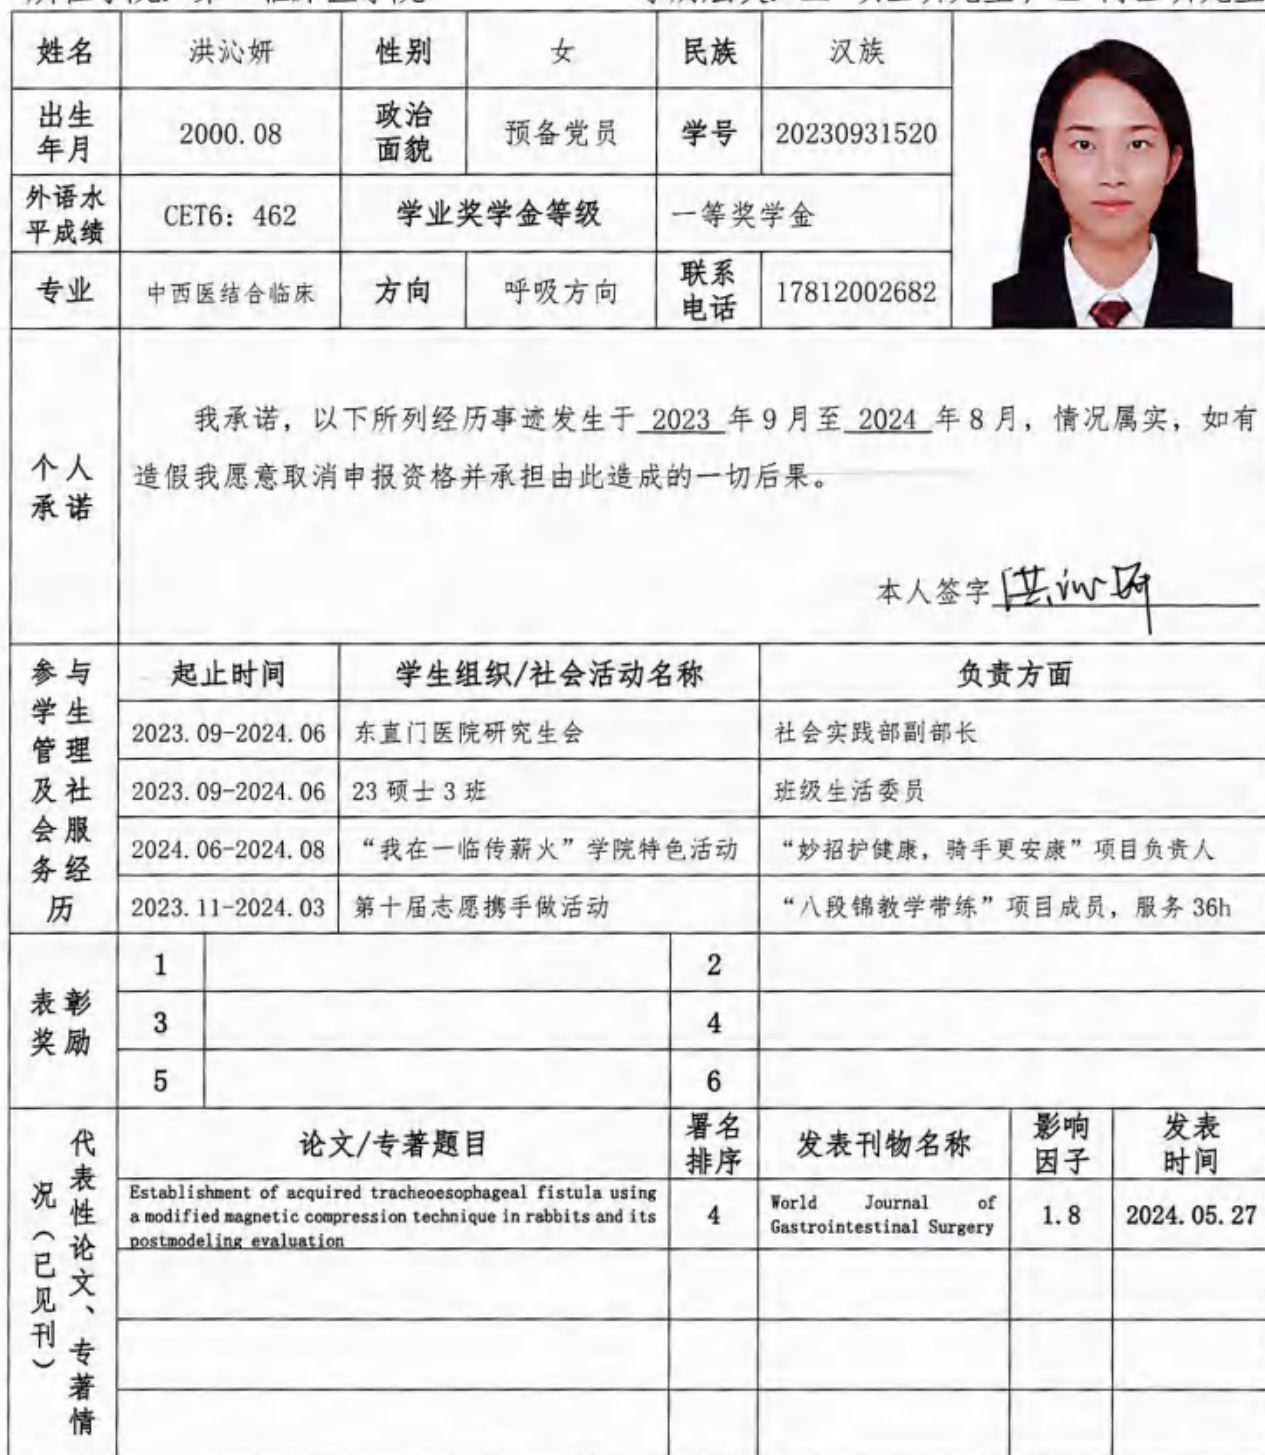 姓名 洪沁妍 性别 女 民族 汉族
出生年月 2000.08 政治面貌 预备党员 学号 20230931520
外语水平成绩 CET6: 462 学业奖学金等级 一等奖学金
专业 中西医结合临床 方向 呼吸方向 联系电话 17812002682
个人承诺
我承诺，以下所列经历事迹发生于 2023 年9月至 2024 年8月，情况属实，如有
造假我愿意取消申报资格并承担由此造成的一切后果。
本人签字 洪沁妍
参与学生管理及社会服务经历
起止时间 学生组织/社会活动名称 负责方面
2023.09-2024.06 东直门医院研究生会 社会实践部副部长
2023.09-2024.06 23硕士3班 班级生活委员
2024.06-2024.08 “我在一临传薪火”学院特色活动 “妙招护健康，骑手更安康”项目负责人
2023.11-2024.03 第十届志愿携手做活动 “八段锦教学带练”项目成员，服务36h
表彰奖励
1 2
3 4
5 6
代表性论文、专著情况（已见刊）
论文/专著题目 署名排序 发表刊物名称 影响因子 发表时间
Establishment of acquired tracheoesophageal fistula using
a modified magnetic compression technique in rabbits and its
postmodeling evaluation
4
World Journal of
Gastrointestinal Surgery
1.8 2024.05.27